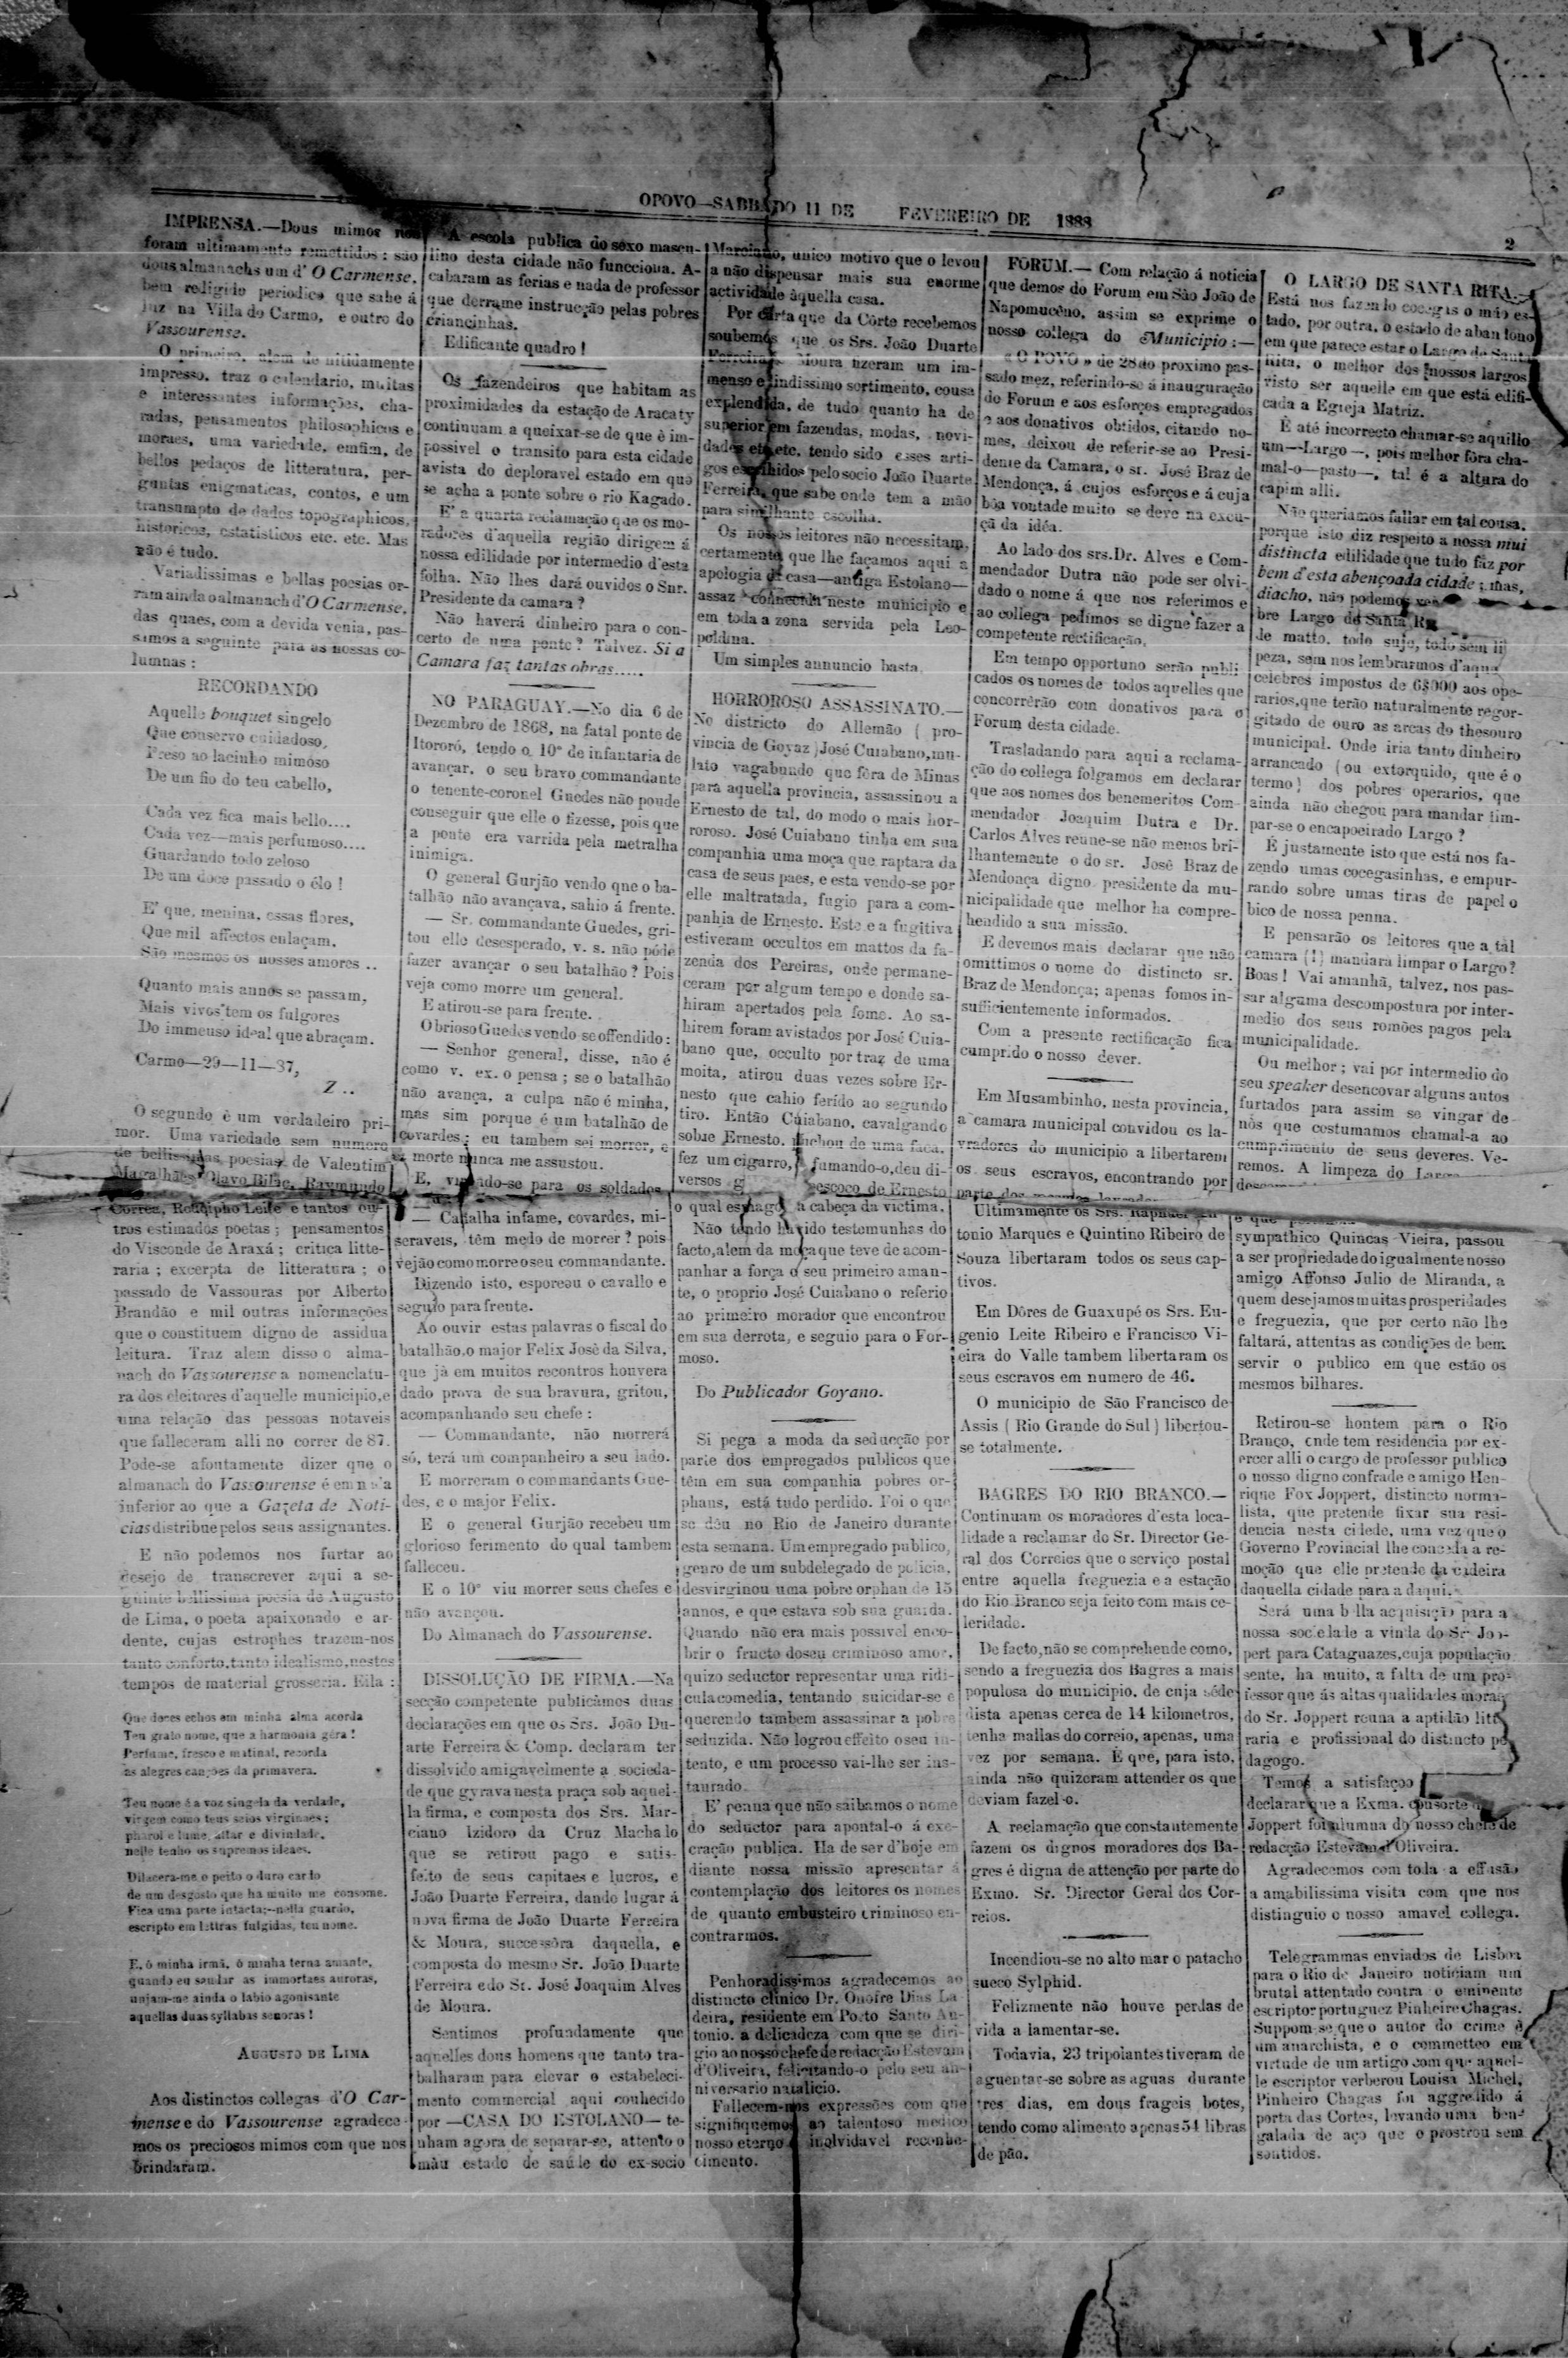 OPOVO—SABBADO 11 DE FEVEREIRO DE 1888
2
IMPRENSA.—Dous mimos nos
foram ultimamente remettidos : são
dous almanachs um d' O Carmense,
bem redigido periodico que sahe á
luz na Villa do Carmo, e outro do
Vassourense.
O primeiro, alem de nitidamente
impresso, traz o calendario, muitas
e interessantes informações, cha-
radas, pensamentos philosophicos e
moraes, uma variedade, emfim, de
bellos pedaços de litteratura, per-
guntas enigmaticas, contos, e um
transumpto de dados topographicos,
historicos, estatisticos etc. etc. Mas
não é tudo.
Variadissimas e bellas poesias or-
ram ainda o almanach d'O Carmense,
das quaes, com a devida venia, pas-
samos a seguinte para as nossas co-
lumnas :
RECORDANDO
Aquelle bouquet singelo
Que conservo cuidadoso,
Preso ao lacinho mimoso
De um fio do teu cabello,
Cada vez fica mais bello....
Cada vez—mais perfumoso....
Guardando todo zeloso
De um doce passado o élo !
E' que, menina, essas flores,
Que mil affectos enlaçam,
São mesmos os nosses amores ..
Quanto mais annos se passam,
Mais vivos tem os fulgores
Do immenso ideal que abraçam.
Carmo—29—11—87,
Z ..
O segundo é um verdadeiro pri-
mor. Uma variedade sem numero
de bellissimas poesias de Valentim
Magalhães, Olavo Bilac, Raymundo
Corrêa, Rodolpho Leite e tantos ou-
tros estimados poetas ; pensamentos
do Visconde de Araxá ; critica litte-
raria ; excerpta de litteratura ; o
passado de Vassouras por Alberto
Brandão e mil outras informações
que o constituem digno de assidua
leitura. Traz alem disso o alma-
nach do Vassourense a nomenclatu-
ra dos eleitores d'aquelle municipio, e
uma relação das pessoas notaveis
que falleceram alli no correr de 87.
Pode-se afoutamente dizer que o
almanach do Vassourense é em nada
inferior ao que a Gazeta de Noti-
cias distribue pelos seus assignantes.
E não podemos nos furtar ao
desejo de transcrever aqui a se-
guinte bellissima poesia de Augusto
de Lima, o poeta apaixonado e ar-
dente, cujas estrophes trazem-nos
tanto conforto, tanto idealismo, nestes
tempos de material grosseria. Eila :
Que doces echos em minha alma acorda
Teu grato nome, que a harmonia géra !
Perfume, fresco e matinal, recorda
as alegres canções da primavera.
Teu nome é a voz singela da verdade,
virgem como teus seios virginaes ;
pharol e lume, altar e divindade,
nelle tenho os supremos ideaes.
Dilacera-me o peito o duro cardo
de um desgosto que ha muito me consome.
Fica uma parte intacta;—nella guardo,
escripto em lettras fulgidas, teu nome.
E, ó minha irmã, ó minha terna amante,
quando eu saudar as immortaes auroras,
unjam-me ainda o labio agonisante
aquellas duas syllabas sonoras !
AUGUSTO DE LIMA
Aos distinctos collegas d'O Car-
mense e do Vassourense agradece-
mos os preciosos mimos com que nos
brindaram.
A escola publica do sexo mascu-
lino desta cidade não funcciona. A-
cabaram as ferias e nada de professor
que derrame instrucção pelas pobres
criancinhas.
Edificante quadro !
Os fazendeiros que habitam as
proximidades da estação de Aracaty
continuam a queixar-se de que è im-
possivel o transito para esta cidade
avista do deploravel estado em que
se acha a ponte sobre o rio Kagado.
E' a quarta reclamação que os mo-
radores d'aquella região dirigem á
nossa edilidade por intermedio d'esta
folha. Não lhes dará ouvidos o Snr.
Presidente da camara ?
Não haverá dinheiro para o con-
certo de uma ponte ? Talvez. Si a
Camara faz tantas obras.....
NO PARAGUAY.—No dia 6 de
Dezembro de 1868, na fatal ponte de
Itororó, tendo o 10º de infantaria de
avançar, o seu bravo commandante
o tenente-coronel Guedes não poude
conseguir que elle o fizesse, pois que
a ponte era varrida pela metralha
inimiga.
O general Gurjão vendo que o ba-
talhão não avançava, sahio á frente.
— Sr. commandante Guedes, gri-
tou elle desesperado, v. s. não póde
fazer avançar o seu batalhão ? Pois
veja como morre um general.
E atirou-se para frente.
O brioso Guedes vendo se offendido :
— Senhor general, disse, não é
como v. ex. o pensa ; se o batalhão
não avança, a culpa não é minha,
mas sim porque é um batalhão de
covardes ; eu tambem sei morrer, e
a morte nunca me assustou.
E, virando-se para os soldados
— Canalha infame, covardes, mi-
seraveis, têm medo de morrer ? pois
vejão como morre o seu commandante.
Dizendo isto, esporeou o cavallo e
seguio para frente.
Ao ouvir estas palavras o fiscal do
batalhão, o major Felix José da Silva,
que já em muitos recontros houvera
dado prova de sua bravura, gritou,
acompanhando seu chefe :
— Commandante, não morrerá
só, terá um companheiro a seu lado.
E morreram o commandants Gue-
des, e o major Felix.
E o general Gurjão recebeu um
glorioso ferimento do qual tambem
falleceu.
E o 10º viu morrer seus chefes e
não avançou.
Do Almanach do Vassourense.
DISSOLUÇÃO DE FIRMA.—Na
secção competente publicámos duas
declarações em que os Srs. João Du-
arte Ferreira & Comp. declaram ter
dissolvido amigavelmente a socieda-
de que gyrava nesta praça sob aquel-
la firma, e composta dos Srs. Mar-
ciano Izidoro da Cruz Machalo
que se retirou pago e satis-
feito de seus capitaes e lucros, e
João Duarte Ferreira, dando lugar á
nova firma de João Duarte Ferreira
& Moura, successôra daquella, e
composta do mesmo Sr. João Duarte
Ferreira e do Sr. José Joaquim Alves
de Moura.
Sentimos profundamente que
aquelles dous homens que tanto tra-
balharam para elevar o estabeleci-
mento commercial aqui conhecido
por —CASA DO ESTOLANO— te-
nham agora de separar-se, attento o
máu estado de saúde do ex-socio
Marciano, unico motivo que o levou
a não dispensar mais sua enorme
actividade àquella casa.
Por carta que da Côrte recebemos
soubemos que os Srs. João Duarte
Ferreira & Moura fizeram um im-
menso e lindissimo sortimento, cousa
explendida, de tudo quanto ha de
superior em fazendas, modas, novi-
dades etc etc. tendo sido esses arti-
gos escolhidos pelo socio João Duarte
Ferreira, que sabe onde tem a mão
para similhante escolha.
Os nossos leitores não necessitam,
certamente que lhe façamos aqui a
apologia da casa—antiga Estolano—
assaz connecida neste municipio e
em toda a zona servida pela Leo-
poldina.
Um simples annuncio basta.
HORROROSO ASSASSINATO.—
No districto do Allemão ( pro-
vincia de Goyaz ) José Cuiabano, mu-
lato vagabundo que fôra de Minas
para aquella provincia, assassinou a
Ernesto de tal, do modo o mais hor-
roroso. José Cuiabano tinha em sua
companhia uma moça que raptara da
casa de seus paes, e esta vendo-se por
elle maltratada, fugio para a com-
panhia de Ernesto. Este e a fugitiva
estiveram occultos em mattos da fa-
zenda dos Pereiras, onde permane-
ceram por algum tempo e donde sa-
hiram apertados pela fome. Ao sa-
hirem foram avistados por José Cuia-
bano que, occulto por traz de uma
moita, atirou duas vezes sobre Er-
nesto que cahio ferido ao segundo
tiro. Então Cuiabano, cavalgando
sobre Ernesto, puchou de uma faca,
fez um cigarro, fumando-o, deu di-
versos g pescoço de Ernesto
o qual esmagou a cabeça da victima.
Não tendo havido testemunhas do
facto, alem da moça que teve de acom-
panhar a força o seu primeiro aman-
te, o proprio José Cuiabano o referio
ao primeiro morador que encontrou
em sua derrota, e seguio para o For-
moso.
Do Publicador Goyano.
Si pega a moda da seducção por
parte dos empregados publicos que
têm em sua companhia pobres or-
phans, está tudo perdido. Foi o que
se dêu no Rio de Janeiro durante
esta semana. Um empregado publico,
genro de um subdelegado de policia,
desvirginou uma pobre orphan de 15
annos, e que estava sob sua guarda.
Quando não era mais possivel enco-
brir o fructo do seu criminoso amor,
quizo seductor representar uma ridi-
cula comedia, tentando suicidar-se e
querendo tambem assassinar a pobre
seduzida. Não logrou effeito o seu in-
tento, e um processo vai-lhe ser ins-
taurado.
E' penna que não saibamos o nome
do seductor para apontal-o á exe-
cração publica. Ha de ser d'hoje em
diante nossa missão apresentar á
contemplação dos leitores os nomes
de quanto embusteiro criminoso en-
contrarmos.
Penhoradissimos agradecemos ao
distincto clinico Dr. Onofre Dias La-
deira, residente em Porto Santo An-
tonio, a delicadeza com que se diri-
gio ao nosso chefe de redacção Estevam
d'Oliveira, felicitando-o pelo seu an-
niversario natalicio.
Fallecem-nos expressões com que
signifiquemos ao talentoso medico
nosso eterno e inolvidavel reconhe-
cimento.
FORUM.— Com relação á noticia
que demos do Forum em São João de
Napomucêno, assim se exprime o
nosso collega do Municipio :—
« O POVO » de 28 do proximo pas-
sado mez, referindo-se á inauguração
do Forum e aos esforços empregados
e aos donativos obtidos, citando no-
mes, deixou de referir-se ao Presi-
dente da Camara, o sr. José Braz de
Mendonça, á cujos esforços e á cuja
bôa vontade muito se deve na execu-
çã da idéa.
Ao lado dos srs. Dr. Alves e Com-
mendador Dutra não pode ser olvi-
dado o nome á que nos referimos e
ao collega pedimos se digne fazer a
competente rectificação.
Em tempo opportuno serão publi-
cados os nomes de todos aquelles que
concorrêrão com donativos para o
Forum desta cidade.
Trasladando para aqui a reclama-
ção do collega folgamos em declarar
que aos nomes dos benemeritos Com-
mendador Joaquim Dutra e Dr.
Carlos Alves reune-se não menos bri-
lhantemente o do sr. José Braz de
Mendonça digno presidente da mu-
nicipalidade que melhor ha compre-
hendido a sua missão.
E devemos mais declarar que não
omittimos o nome do distincto sr.
Braz de Mendonça; apenas fomos in-
sufficientemente informados.
Com a presente rectificação fica
cumprido o nosso dever.
Em Musambinho, nesta provincia,
a camara municipal convidou os la-
vradores do municipio a libertarem
os seus escravos, encontrando por
parte dos mesmos
Ultimamente os Srs. Raphael
tonio Marques e Quintino Ribeiro de
Souza libertaram todos os seus cap-
tivos.
Em Dôres de Guaxupé os Srs. Eu-
genio Leite Ribeiro e Francisco Vi-
eira do Valle tambem libertaram os
seus escravos em numero de 46.
O municipio de São Francisco de
Assis ( Rio Grande do Sul ) libertou-
se totalmente.
BAGRES DO RIO BRANCO.—
Continuam os moradores d'esta loca-
lidade a reclamar do Sr. Director Ge-
ral dos Correios que o serviço postal
entre aquella freguezia e a estação
do Rio Branco seja feito com mais ce-
leridade.
De facto, não se comprehende como,
sendo a freguezia dos Bagres a mais
populosa do municipio, de cuja séde
dista apenas cerca de 14 kilometros,
tenha mallas do correio, apenas, uma
vez por semana. É que, para isto,
ainda não quizeram attender os que
deviam fazel-o.
A reclamação que constantemente
fazem os dignos moradores dos Ba-
gres é digna de attenção por parte do
Exmo. Sr. Director Geral dos Cor-
reios.
Incendiou-se no alto mar o patacho
sueco Sylphid.
Felizmente não houve perdas de
vida a lamentar-se.
Todavia, 23 tripolantes tiveram de
aguentar-se sobre as aguas durante
tres dias, em dous frageis botes,
tendo como alimento apenas 54 libras
de pão.
O LARGO DE SANTA RITA.—
Está nos fazendo cocegas o máo es-
tado, por outra, o estado de abandono
em que parece estar o Largo de Santa
Rita, o melhor dos nossos largos
visto ser aquelle em que está edifi-
cada a Egreja Matriz.
É até incorrecto chamar-se aquillo
um—Largo—, pois melhor fôra cha-
mal-o—pasto—, tal é a altura do
capim alli.
Não queriamos fallar em tal cousa,
porque isto diz respeito a nossa mui
distincta edilidade que tudo faz por
bem d'esta abençoada cidade ; mas,
diacho, não podemos
bre Largo de Santa Ri
de matto, todo sujo, todo sem li
peza, sem nos lembrarmos d'aqu
celebres impostos de 6$000 aos ope-
rarios, que terão naturalmente regor-
gitado de ouro as arcas do thesouro
municipal. Onde iria tanto dinheiro
arrancado (ou extorquido, que é o
termo) dos pobres operarios, que
ainda não chegou para mandar lim-
par-se o encapoeirado Largo ?
É justamente isto que está nos fa-
zendo umas cocegasinhas, e empur-
rando sobre umas tiras de papel o
bico de nossa penna.
E pensarão os leitores que a tal
camara (!) mandará limpar o Largo?
Boas ! Vai amanhã, talvez, nos pas-
sar alguma descompostura por inter-
medio dos seus romões pagos pela
municipalidade.
Ou melhor ; vai por intermedio do
seu speaker desencovar alguns autos
furtados para assim se vingar de
nós que costumamos chamal-a ao
cumprimento de seus deveres. Ve-
remos. A limpeza do Largo
e que
sympathico Quincas Vieira, passou
a ser propriedade do igualmente nosso
amigo Affonso Julio de Miranda, a
quem desejamos muitas prosperidades
e freguezia, que por certo não lhe
faltará, attentas as condições de bem
servir o publico em que estão os
mesmos bilhares.
Retirou-se hontem para o Rio
Branco, onde tem residencia por ex-
ercer alli o cargo de professor publico
o nosso digno confrade e amigo Hen-
rique Fox Joppert, distincto norma-
lista, que pretende fixar sua resi-
dencia nesta cidede, uma vez que o
Governo Provincial lhe conceda a re-
moção que elle pretende da cadeira
daquella cidade para a daqui.
Será uma bella acquisição para a
nossa sociedade a vinda do Sr. Jop-
pert para Cataguazes, cuja população
sente, ha muito, a falta de um pro-
fessor que ás altas qualidades moraes
do Sr. Joppert reuna a aptidão litt
raria e profissional do distincto pe
dagogo.
Temos a satisfaçoo
declarar que a Exma. consorte
Joppert foi alumna do nosso chefe de
redacção Estevam d'Oliveira.
Agradecemos com toda a effusão
a amabilissima visita com que nos
distinguio o nosso amavel collega.
Telegrammas enviados de Lisboa
para o Rio de Janeiro noticiam um
brutal attentado contra o eminente
escriptor portuguez Pinheiro Chagas.
Suppom-se que o autor do crime é
um anarchista, e o commetteo em
virtude de um artigo com que aquel-
le escriptor verberou Louisa Michel.
Pinheiro Chagas foi aggredido á
porta das Cortes, levando uma ben-
galada de aço que o prostrou sem
sentidos.